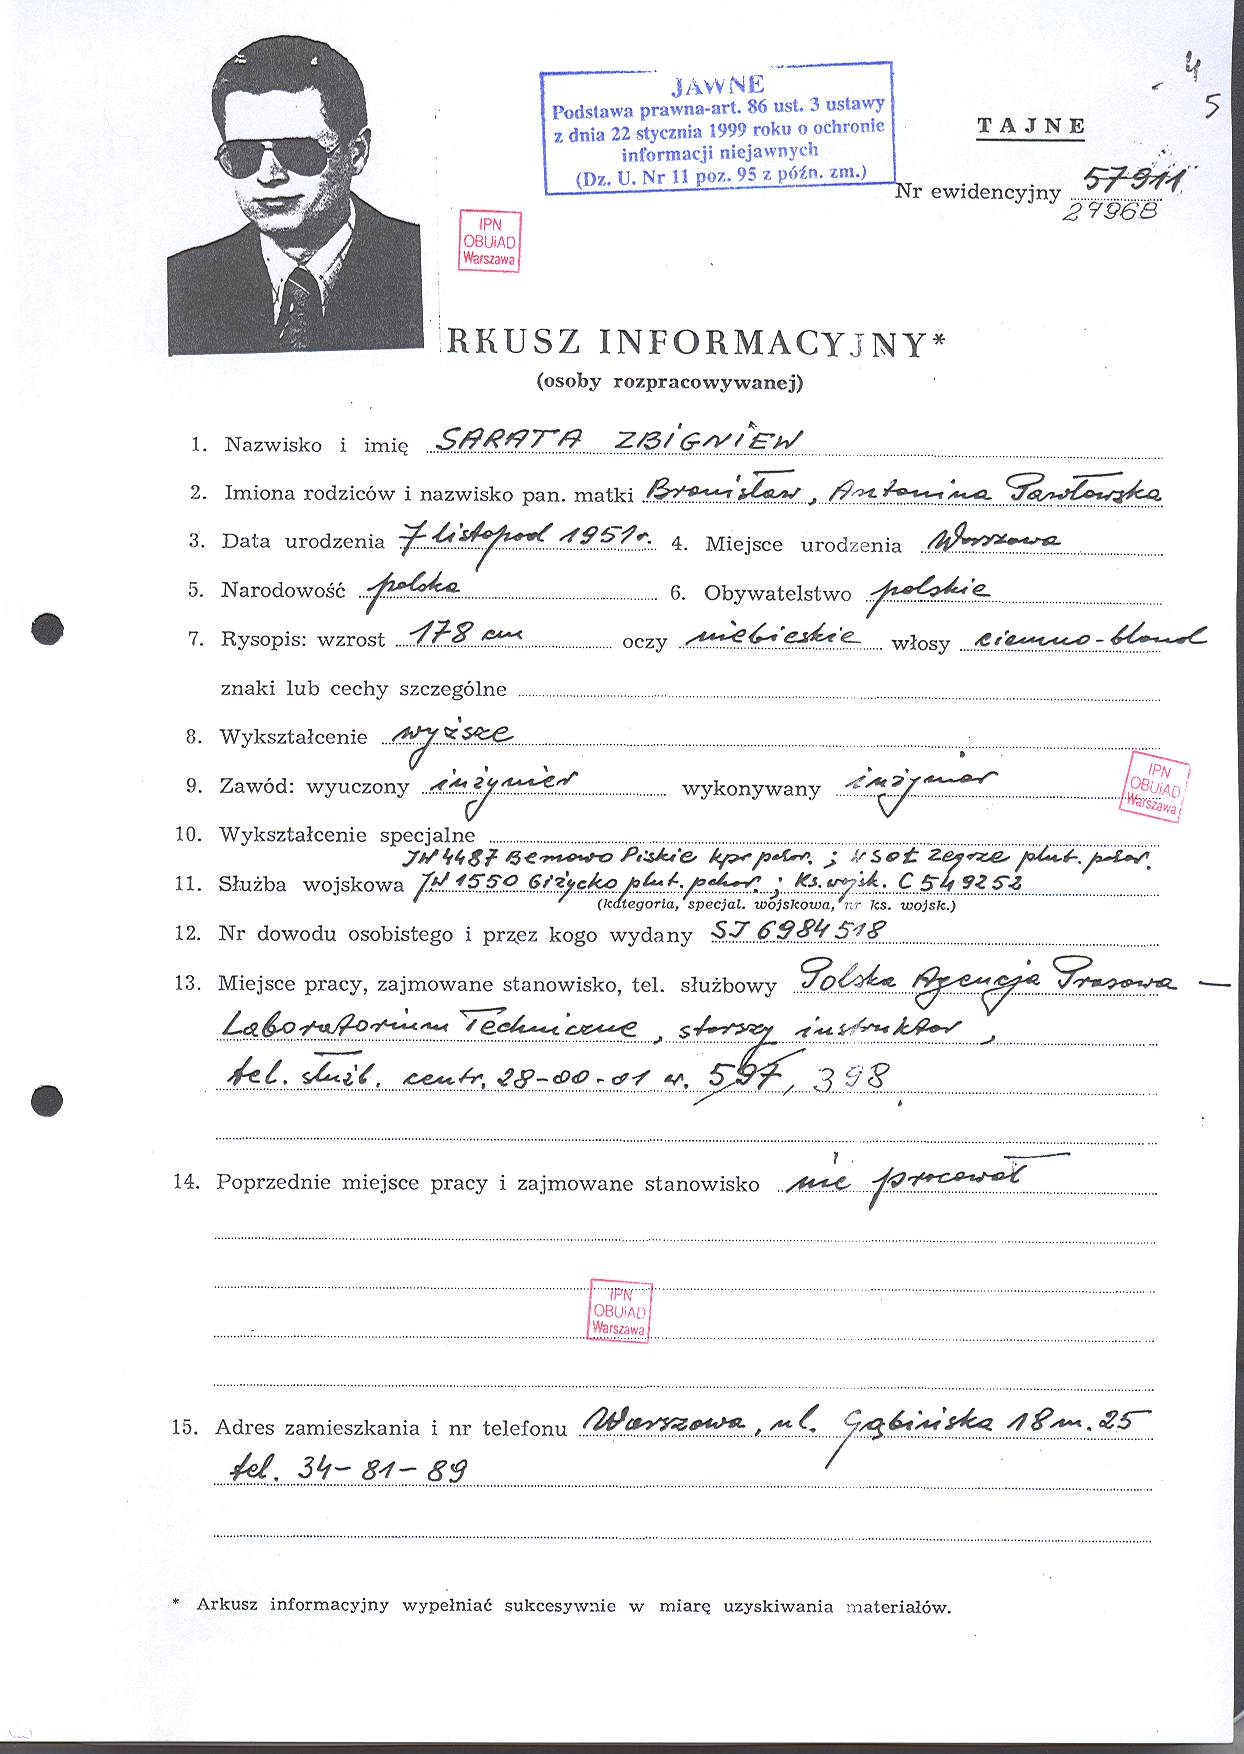 4
5
JAWNE
Podstawa prawna-art. 86 ust. 3 ustawy
z dnia 22 stycznia 1999 roku o ochronie
informacji niejawnych
(Dz. U. Nr 11 poz. 95 z późn. zm.)
TAJNE
Nr ewidencyjny 57911
27968
IPN
OBUiAD
Warszawa
RKUSZ INFORMACYJNY*
(osoby rozpracowywanej)
1. Nazwisko i imię SARATA ZBIGNIEW
2. Imiona rodziców i nazwisko pan. matki Bronisław, Antonina Pawłowska
3. Data urodzenia 7 listopad 1951 r. 4. Miejsce urodzenia Warszawa
5. Narodowość polska 6. Obywatelstwo polskie
7. Rysopis: wzrost 178 cm oczy niebieskie włosy ciemno-blond
znaki lub cechy szczególne
8. Wykształcenie wyższe
9. Zawód: wyuczony inżynier wykonywany inżynier
IPN
OBUiAD
Warszawa
10. Wykształcenie specjalne
JW 4487 Bemowo Piskie kpr pchor. ; WSOŁ Zegrze plut. pchor.
11. Służba wojskowa JW 1550 Giżycko plut. pchor. ; Ks. wojsk. C 549252
(kategoria, specjal. wojskowa, nr ks. wojsk.)
12. Nr dowodu osobistego i przez kogo wydany SJ 6984518
13. Miejsce pracy, zajmowane stanowisko, tel. służbowy Polska Agencja Prasowa –
Laboratorium Techniczne, starszy instruktor,
tel. służb. centr. 28-00-01 w. 597, 398
14. Poprzednie miejsce pracy i zajmowane stanowisko nie pracował
IPN
OBUiAD
Warszawa
15. Adres zamieszkania i nr telefonu Warszawa, ul. Gąbińska 18 m. 25
tel. 34-81-89
* Arkusz informacyjny wypełniać sukcesywnie w miarę uzyskiwania materiałów.